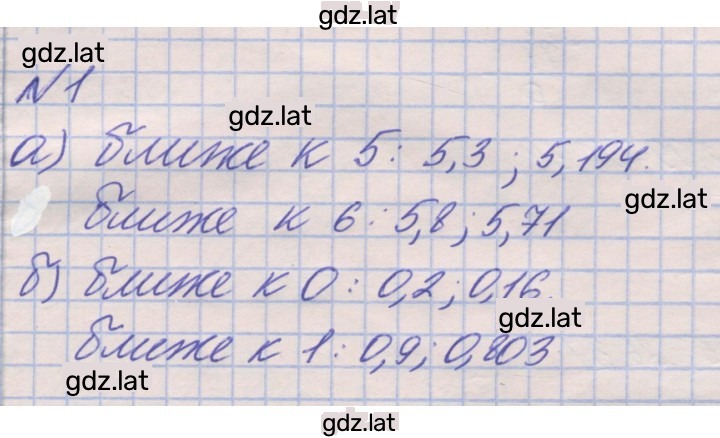 gdz.lat
gdz.lat
№1
gdz.lat
а) ближе к 5: 5,3; 5,194.
gdz.lat
ближе к 6: 5,8; 5,71
б) ближе к 0: 0,2; 0,16.
gdz.lat
ближе к 1: 0,9; 0,803
gdz.lat
gdz.lat